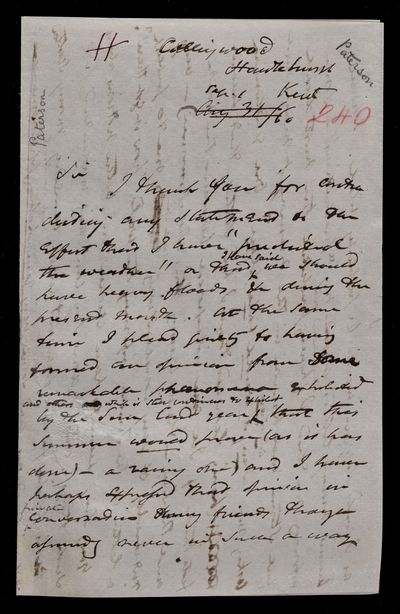 Paterson
Collingwood
Paterson
Hawkhurst
Sep. 1 Kent
Aug 31/60 240
Sir
I thank you for contra
dicting any statement to the
effect that I have "predicted
the weather" or that I have said we should
have heavy floods &c during the
present month. At the same
time I plead guilty to having
formed an opinion from some
remarkable phenomena exhibited
and others which it still continues to exhibit
by the Sun last year that this
Summer would prove (as it has
done) – a rainy one) and I have
perhaps expressed that opinion in
private
conversation friends though
never in such a way